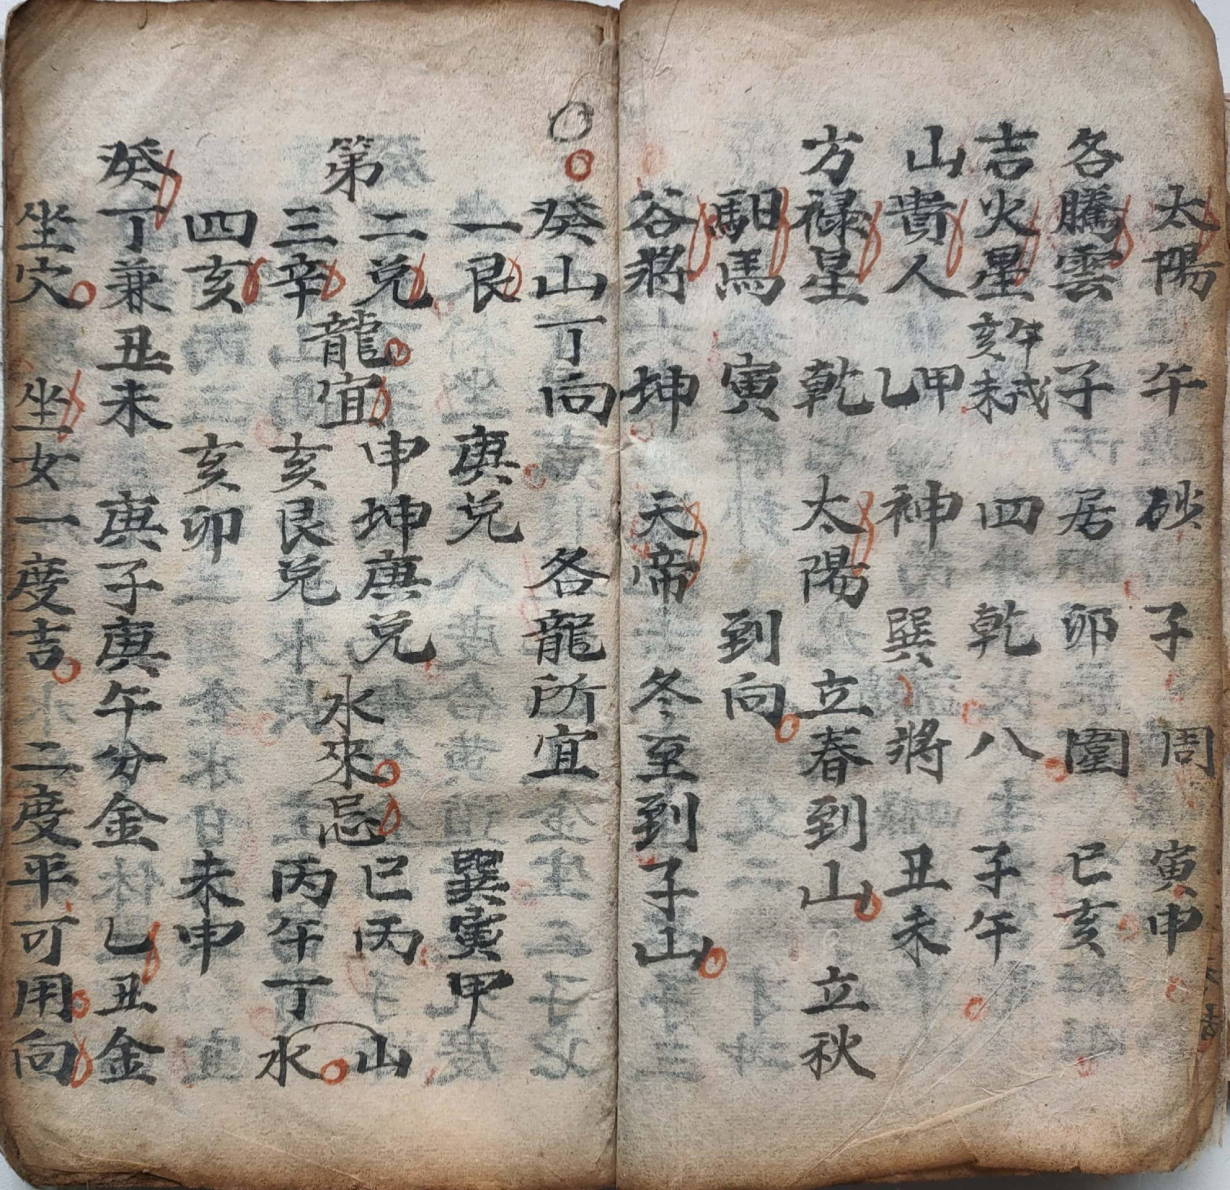 太陽 午 砂 子 周 寅申
各騰雲 子 居 卯 圍 巳亥
吉火星 午戌亥未 四 乾 八 子午
山貴人 甲乙 神 巽 將 丑未
方祿星 乾 太陽 立春到山 立秋
馹馬 寅 到向
谷將 坤 天帝 冬至到子山
癸山丁向 各龍所宜
一艮 庚兌 巽寅甲
二兌 申坤庚兌 巳丙 山
第 龍宜 水來忌
三辛 亥艮兌 丙午丁 水
四亥 亥卯 未申
癸丁兼丑未 庚子庚午分金 乙丑金
坐穴 坐女一度吉 二度平可用向